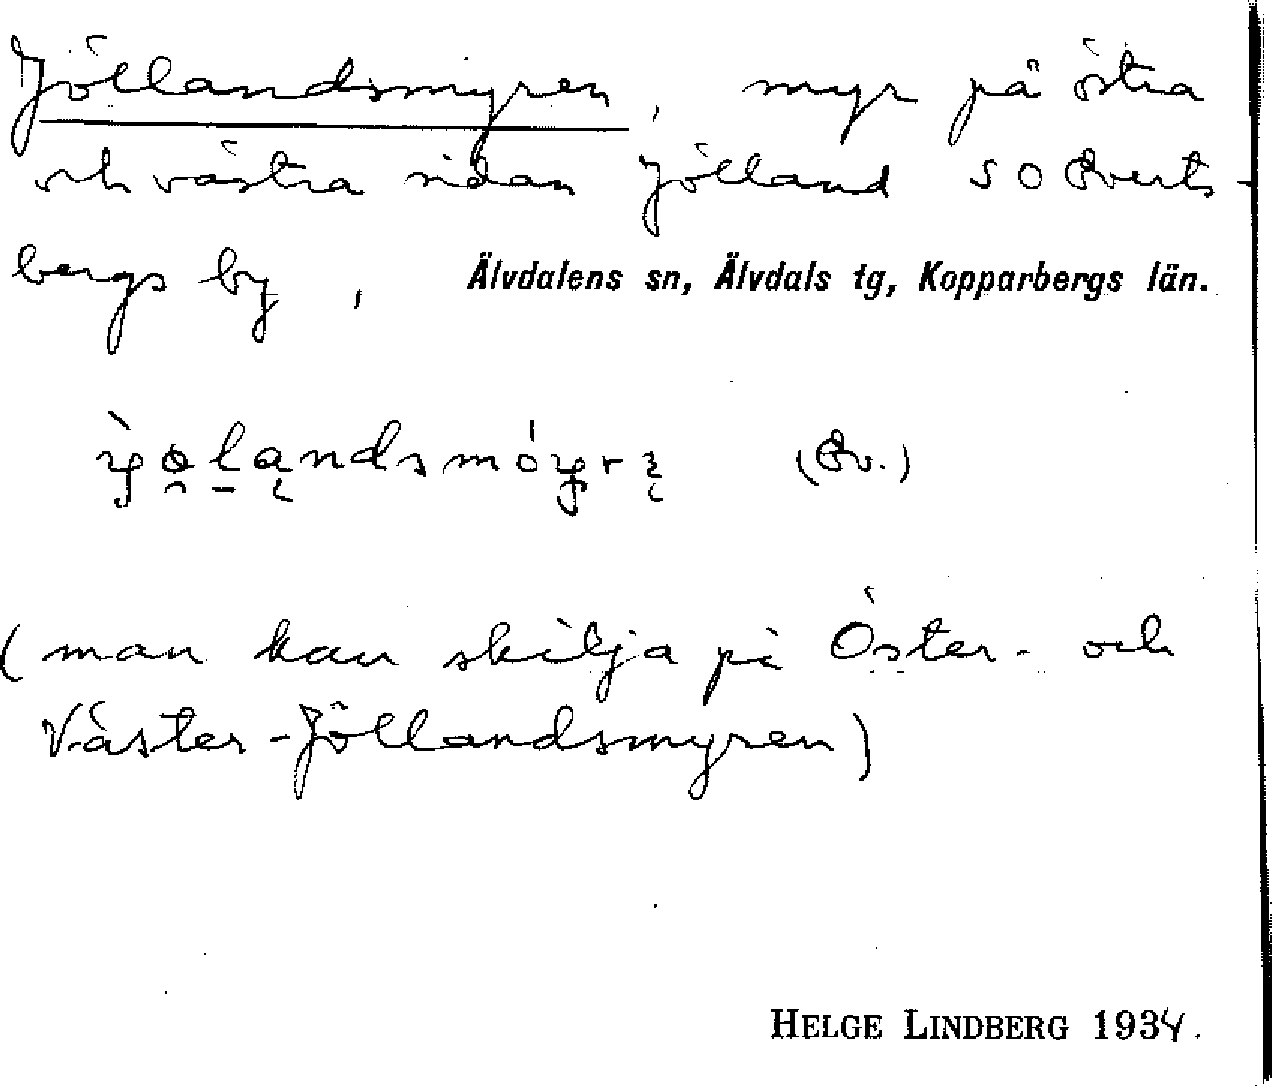 Jöllandsmyren, myr på östra
och västra sidan Jölland SO Everts-
bergs by, Älvdalens sn, Älvdals tg, Kopparbergs län.
(Ev.)
(man kan skilja på Öster- och
Väster-Jöllandsmyren)
HELGE LINDBERG 1934.